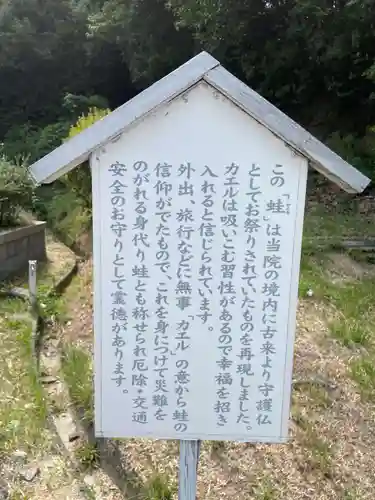 この「蛙」は当院の境内に古来より守護仏
としてお祭りされていたものを戻しました。
カエルは吸いこむ習性があるので幸福を招き
入れると信じられています。
外出、旅行などに無事「カエル」の意から蛙の
信仰がでたもので、これを身につけて災難を
のがれる身代り蛙とも称せられ厄除・交通
安全のお守りとして霊徳があります。